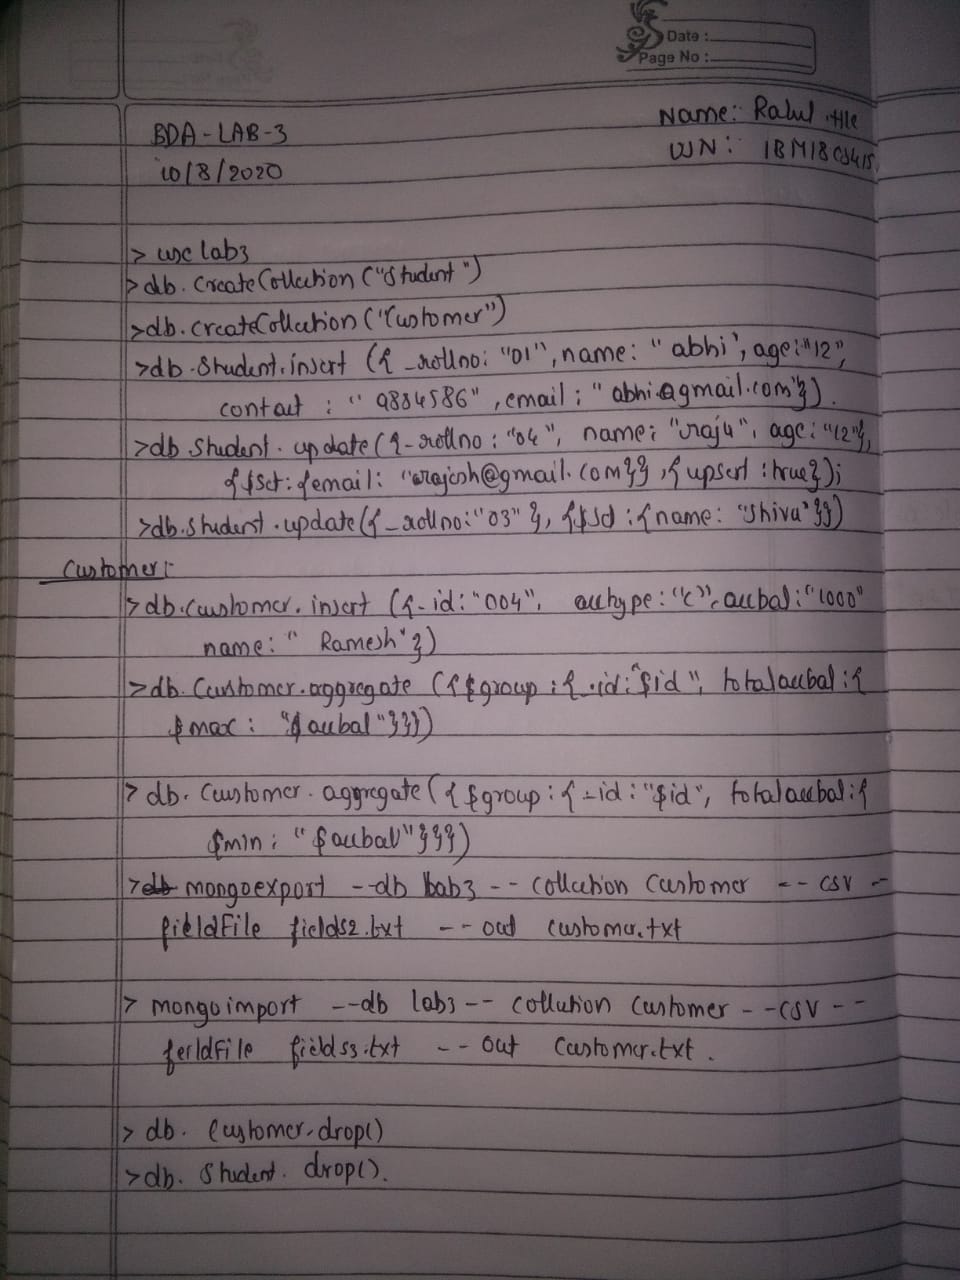 Date :
Page No :
BDA - LAB-3
Name:- Rahul .HC
10/8/2020
USN : 1BM18CS415
> use lab3
> db. createCollection ("Student")
>db.createCollection ("Customer")
>db.Student.insert ({ _rollno: "01", name: "abhi", age:"12",
contact : "9884586", email: "abhi@gmail.com"}).
>db.student.update({_rollno: "04", name: "raju", age: "12"},
{$set:{email: "rajesh@gmail.com}}, {upsert :true});
>db.student.update({_rollno:"03" }, {$set :{name: "Shiva"}})
Customer:-
>db.customer.insert ({_id: "004", acctype: "C", accbal: "1000"
name: " Ramesh"})
>db. Customer.aggregate ({$group : {_id: "$id", totalaccbal:{
$max : "$accbal"}}})
> db. Customer. aggregate({$group: {_id: "$id", totalaccbal:{
$min: "$accbal"}}})
> mongoexport --db lab3 -- collection Customer -- csv --
fieldFile fields2.txt -- out customer.txt
> mongoimport --db lab3 -- collection Customer --csv --
feildFile fields3.txt -- out Customer.txt.
> db. Customer.drop()
>db. Student. drop().